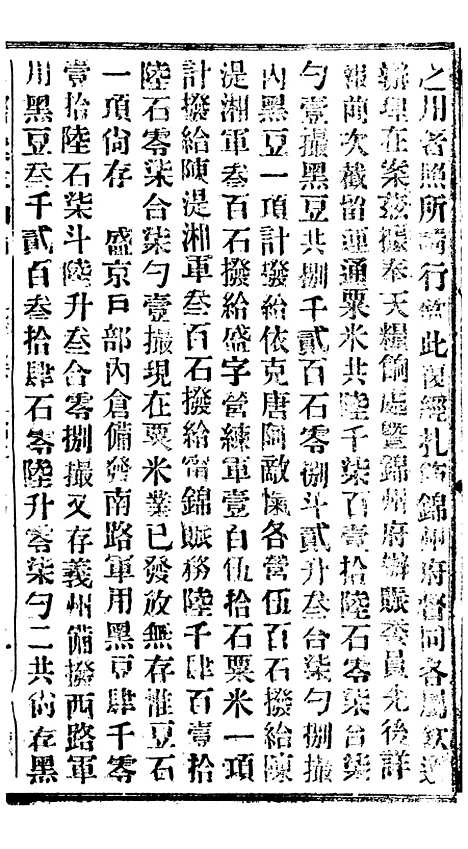 之用者照所請行等此復經札飭錦州府督同各屬欽遵
辦理在案茲據奉天糧餉處暨錦州府辦賑委員先後詳
報前次截留運通粟米共陸千柒百壹拾陸石零柒合柒
勺壹撮黑豆共捌千貳百石零捌斗貳升叁合柒勺捌撮
內黑豆一項計發給依克唐阿敵愾各營伍百石撥給陳
湜湘軍叁百石撥給盛字營練軍壹百伍拾石粟米一項
計撥給陳湜湘軍叁百石撥給甯錦賑務陸千肆百壹拾
陸石零柒合柒勺壹撮現在粟米業已發放無存惟豆石
一項尙存 盛京戶部內倉備發南路軍用黑豆肆千零
壹拾陸石柒斗陸升叁合零捌撮又存義州備撥西路軍
用黑豆叁千貳百叁拾肆石零陸升零柒勺二共尙存黑